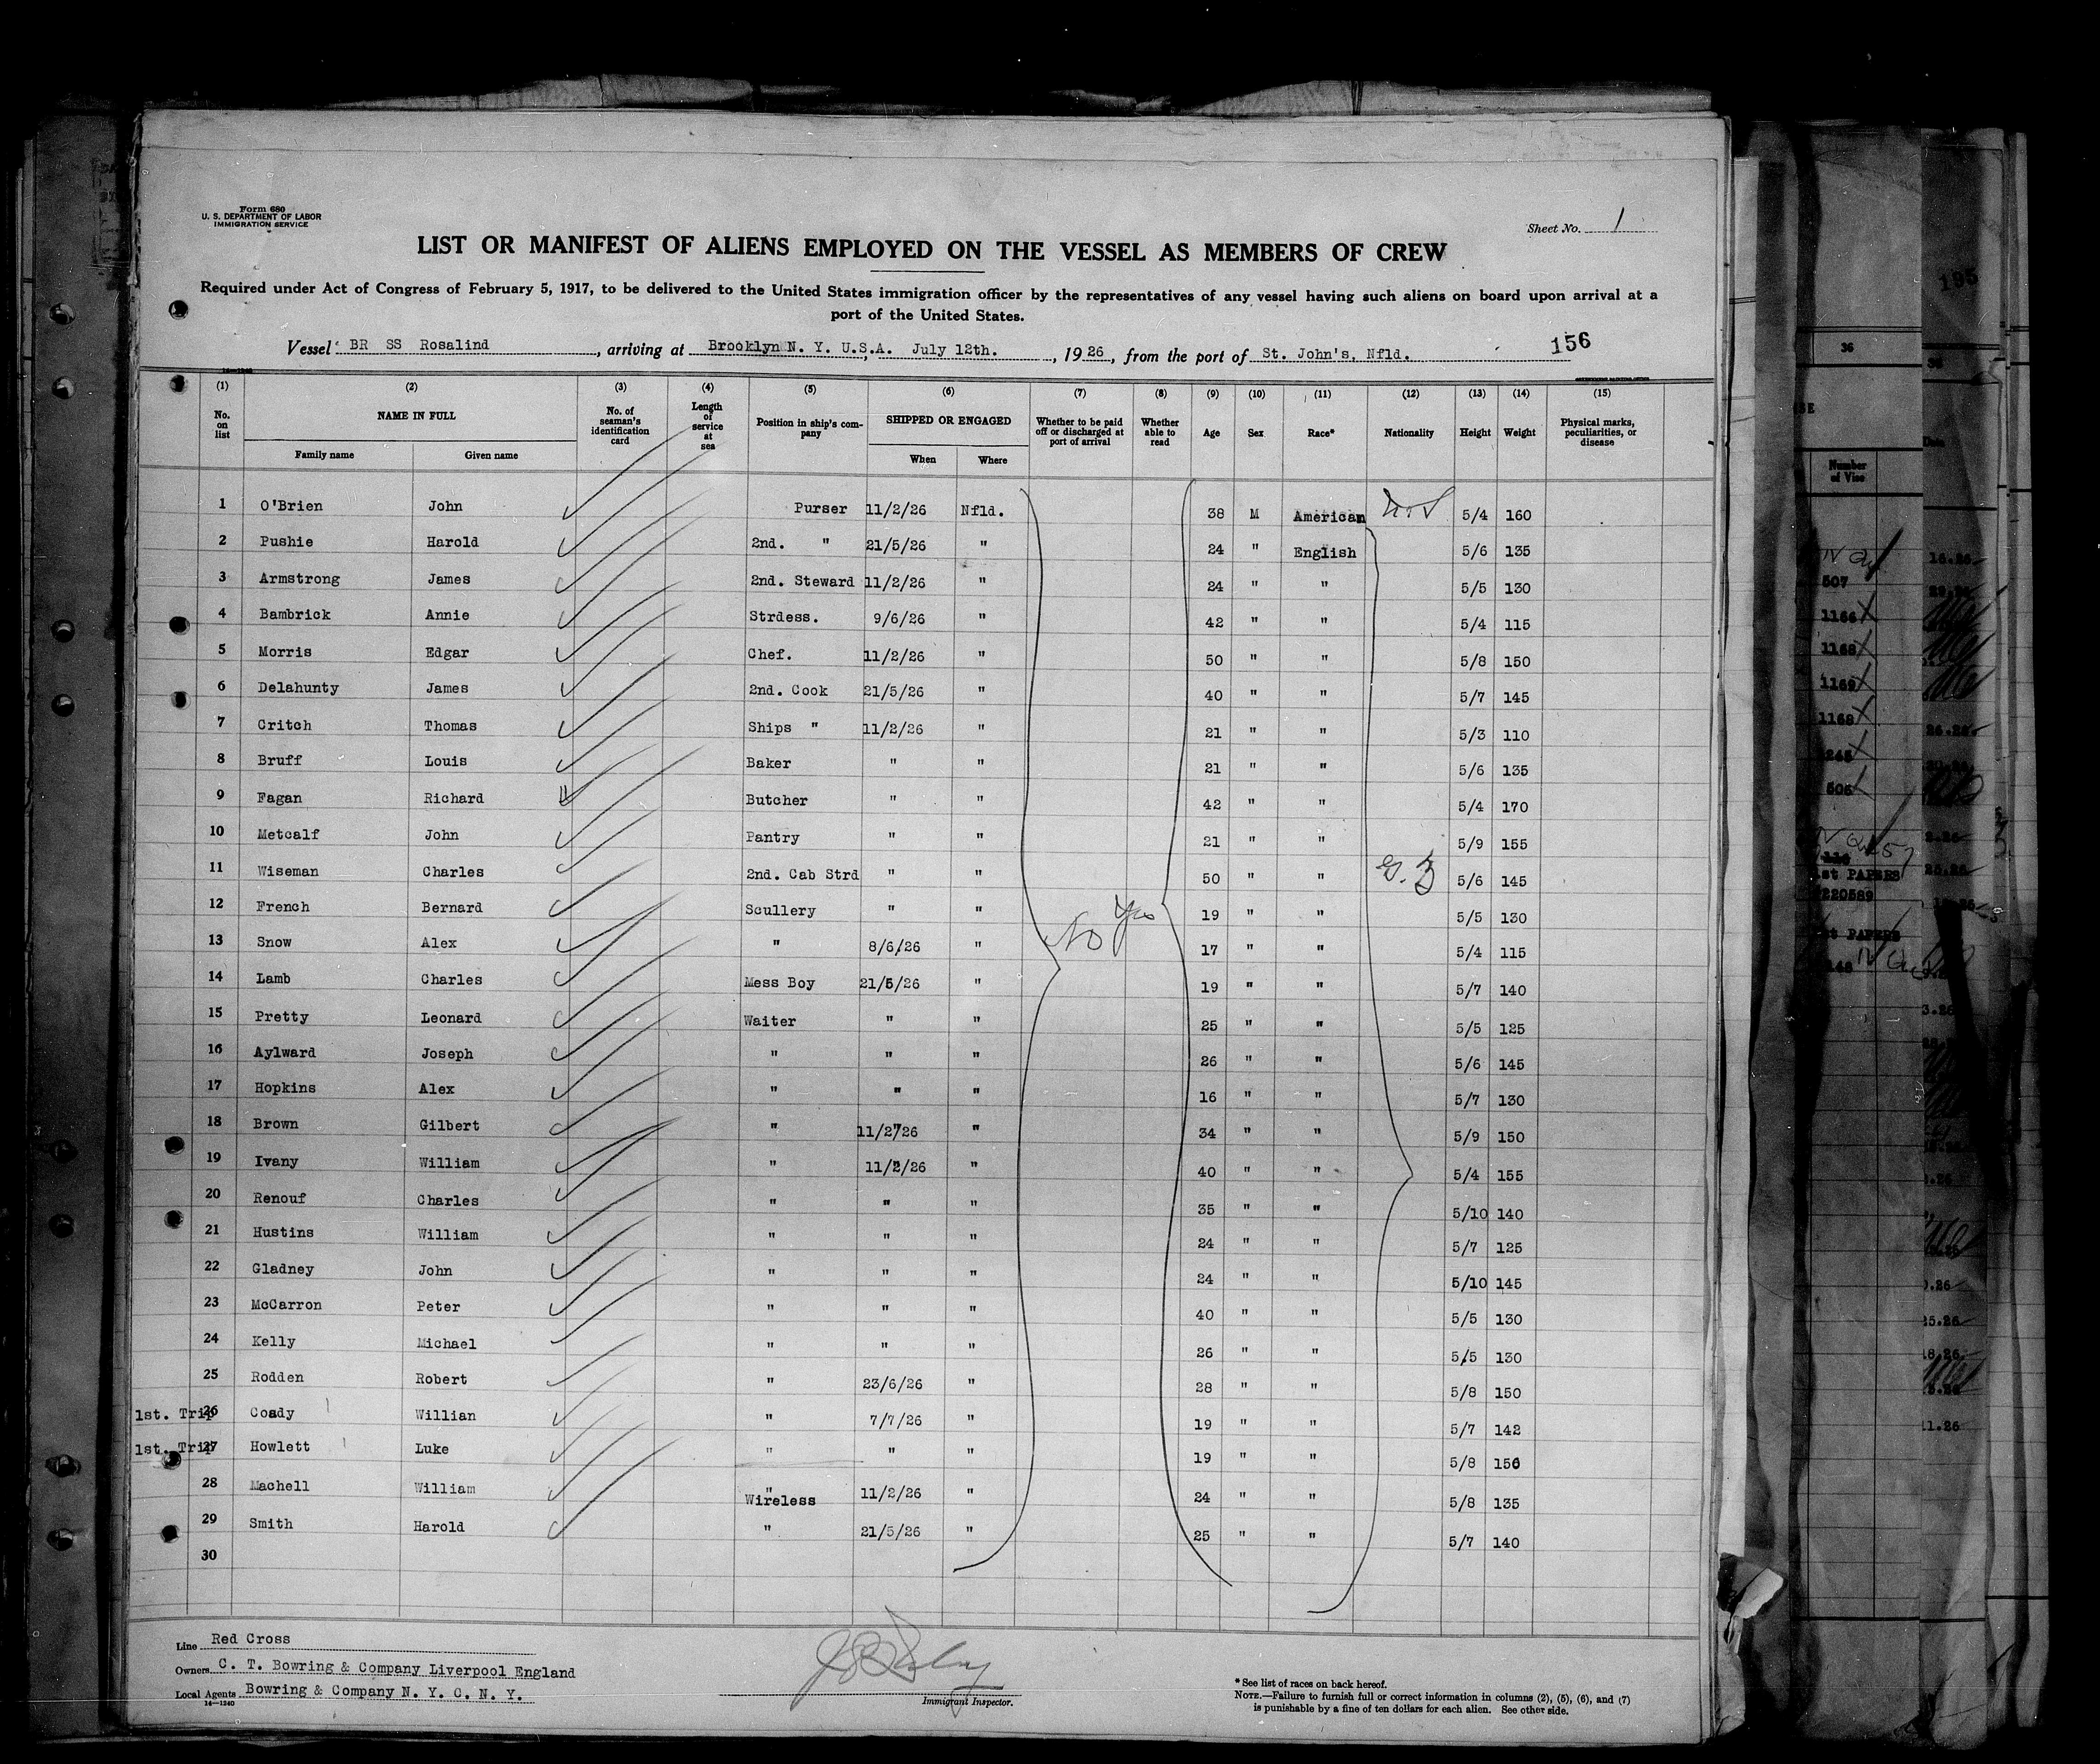 Form 680
U. S. DEPARTMENT OF LABOR
IMMIGRATION SERVICE
Sheet No. 1
LIST OR MANIFEST OF ALIENS EMPLOYED ON THE VESSEL AS MEMBERS OF CREW
Required under Act of Congress of February 5, 1917, to be delivered to the United States immigration officer by the representatives of any vessel having such aliens on board upon arrival at a
port of the United States.
Vessel BR SS Rosalind, arriving at Brooklyn N. Y. U.S.A. July 12th., 1926, from the port of St. John's, Nfld. 156
(1) (2) (3) (4) (5) (6) (7) (8) (9) (10) (11) (12) (13) (14) (15)
No. on list NAME IN FULL Family name Given name No. of seaman's identification card Length of service at sea Position in ship's company SHIPPED OR ENGAGED When Where Whether to be paid off or discharged at port of arrival Whether able to read Age Sex Race* Nationality Height Weight Physical marks, peculiarities, or disease
1 O'Brien John Purser 11/2/26 Nfld. 38 M American 5/4 160
2 Pushie Harold 2nd. " 21/5/26 " 24 " English 5/6 135
3 Armstrong James 2nd. Steward 11/2/26 " 24 " " 5/5 130
4 Bambrick Annie Strdess. 9/6/26 " 42 " " 5/4 115
5 Morris Edgar Chef. 11/2/26 " 50 " " 5/8 150
6 Delahunty James 2nd. Cook 21/5/26 " 40 " " 5/7 145
7 Critch Thomas Ships " 11/2/26 " 21 " " 5/3 110
8 Bruff Louis Baker " " 21 " " 5/6 135
9 Fagan Richard Butcher " " 42 " " 5/4 170
10 Metcalf John Pantry " " 21 " " 5/9 155
11 Wiseman Charles 2nd. Cab Strd " " 50 " " 5/6 145
12 French Bernard Scullery " " No Yes 19 " " 5/5 130
13 Snow Alex " 8/6/26 " 17 " " 5/4 115
14 Lamb Charles Mess Boy 21/5/26 " 19 " " 5/7 140
15 Pretty Leonard Waiter " " 25 " " 5/5 125
16 Aylward Joseph " " " 26 " " 5/6 145
17 Hopkins Alex " " " 16 " " 5/7 130
18 Brown Gilbert " 11/2/26 " 34 " " 5/9 150
19 Ivany William " 11/2/26 " 40 " " 5/4 155
20 Renouf Charles " " " 35 " " 5/10 140
21 Hustins William " " " 24 " " 5/7 125
22 Gladney John " " " 24 " " 5/10 145
23 McCarron Peter " " " 40 " " 5/5 130
24 Kelly Michael " " " 26 " " 5/5 130
25 Rodden Robert " 23/6/26 " 28 " " 5/8 150
1st. Trip 26 Coady Willian " 7/7/26 " 19 " " 5/7 142
1st. Trip 27 Howlett Luke " " " 19 " " 5/8 150
28 Machell William " Wireless 11/2/26 " 24 " " 5/8 135
29 Smith Harold " 21/5/26 " 25 " " 5/7 140
30
Line Red Cross
Owners C. T. Bowring & Company Liverpool England
Local Agents Bowring & Company N. Y. C. N. Y.
14—1240
Immigrant Inspector.
*See list of races on back hereof.
NOTE.—Failure to furnish full or correct information in columns (2), (5), (6), and (7)
is punishable by a fine of ten dollars for each alien. See other side.
195
36
Number
of Vise
507
1166
1168
1169
1168
245
506
1st PAPERS
220589